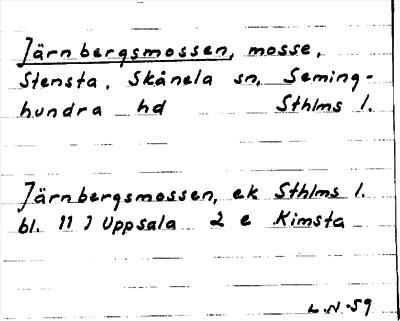 Järnbergsmossen, mosse,
Stensta, Skånela sn, Seming-
hundra hd Sthlms l.
Järnbergsmossen, ek Sthlms l.
bl. 11 J Uppsala 2 e Kimsta
L.N.-59